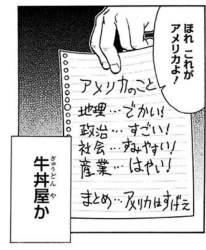 ほれ これが
アメリカよ！
アメリカのこと
地理…でかい！
政治…すごい！
社会…すみやすい！
産業…はやい！
まとめ…アメリカはすげえ
牛丼屋か
ぎゅうどん や